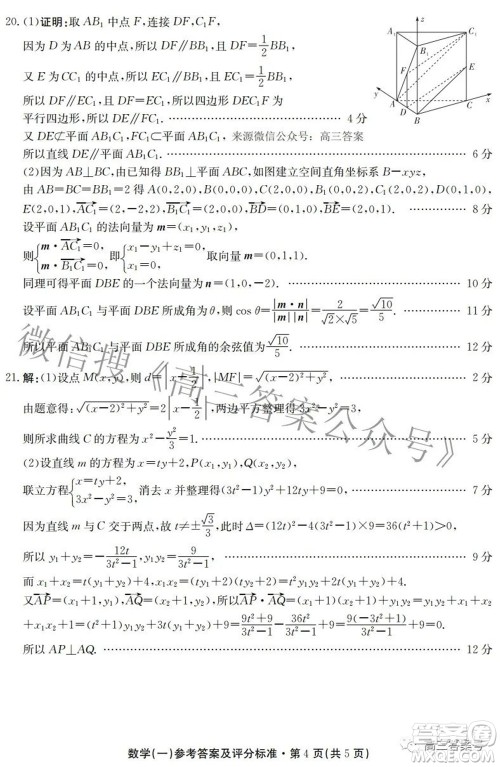 20. (1)证明:取 AB₁ 中点 F,连接 DF,C₁F,
因为 D 为 AB 的中点,所以 DF∥BB₁,且 DF=1/2 BB₁,
又 E 为 CC₁ 的中点,所以 EC₁∥BB₁,且 EC₁=1/2 BB₁,
所以 DF∥EC₁,且 DF=EC₁,所以四边形 DEC₁F 为
平行四边形,所以 DE∥FC₁. 4 分
又 DE⊄平面 AB₁C₁,FC₁⊂平面 AB₁C₁, 来源微信公众号:高三答案
所以直线 DE∥平面 AB₁C₁. 6 分
z
A₁
C₁
B₁
F
E
y
A
D
B
C
x
(2)因为 AB⊥BC,由已知得 BB₁⊥平面 ABC,如图建立空间直角坐标系 B-xyz,
由 AB=BC=BB₁=2 得 A(0,2,0),B(0,0,0),C(2,0,0),B₁(0,0,2),C₁(2,0,2),D(0,1,0),
E(2,0,1),AC₁=(2,-2,2),B₁C₁=(2,0,0),BD=(0,1,0),BE=(2,0,1), 8 分
设平面 AB₁C₁ 的法向量为 m=(x₁,y₁,z₁),
则{m·AC₁=0, m·B₁C₁=0, 即{x₁-y₁+z₁=0, x₁=0, 取向量 m=(0,1,1).
同理可得平面 DBE 的一个法向量为 n=(1,0,-2). 10 分
设平面 AB₁C₁ 与平面 DBE 所成角为 θ,则 cos θ=|m·n|/|m||n|=2/(√2×√5)=√10/5, 11 分
所以平面 AB₁C₁ 与平面 DBE 所成角的余弦值为 √10/5. 12 分
21. 解:(1)设点 M(x,y),则 d=|x-1/2|,|MF|=√((x-2)²+y²), 2 分
由题意得:√((x-2)²+y²)=2|x-1/2|,两边平方整理得
则所求曲线 C 的方程为 x²-y²/3=1. 5 分
(2)设直线 m 的方程为 x=ty+2,P(x₁,y₁),Q(x₂,y₂),
联立方程{x=ty+2, 3x²-y²=3, 消去 x 并整理得(3t²-1)y²+12ty+9=0, 7 分
因为直线 m 与 C 交于两点,故 t≠±√3/3,此时 Δ=(12t)²-4(3t²-1)×9=36(t²+1)>0,
所以 y₁+y₂=-12t/(3t²-1),y₁y₂=9/(3t²-1). 9 分
而 x₁+x₂=t(y₁+y₂)+4,x₁x₂=(ty₁+2)(ty₂+2)=t²y₁y₂+2t(y₁+y₂)+4.
又 AP=(x₁+1,y₁),AQ=(x₂+1,y₂),所以 AP·AQ=(x₁+1)(x₂+1)+y₁y₂=y₁y₂+x₁+x₂+x₁x₂+1
=(t²+1)y₁y₂+3t(y₁+y₂)+9=(9t²+9)/(3t²-1)-36t²/(3t²-1)+9=9(-3t²+1)/(3t²-1)+9=0.
所以 AP⊥AQ. 12 分
微信搜《高三答案公众号》
数学(一)参考答案及评分标准·第 4 页(共 5 页)
高三答案号